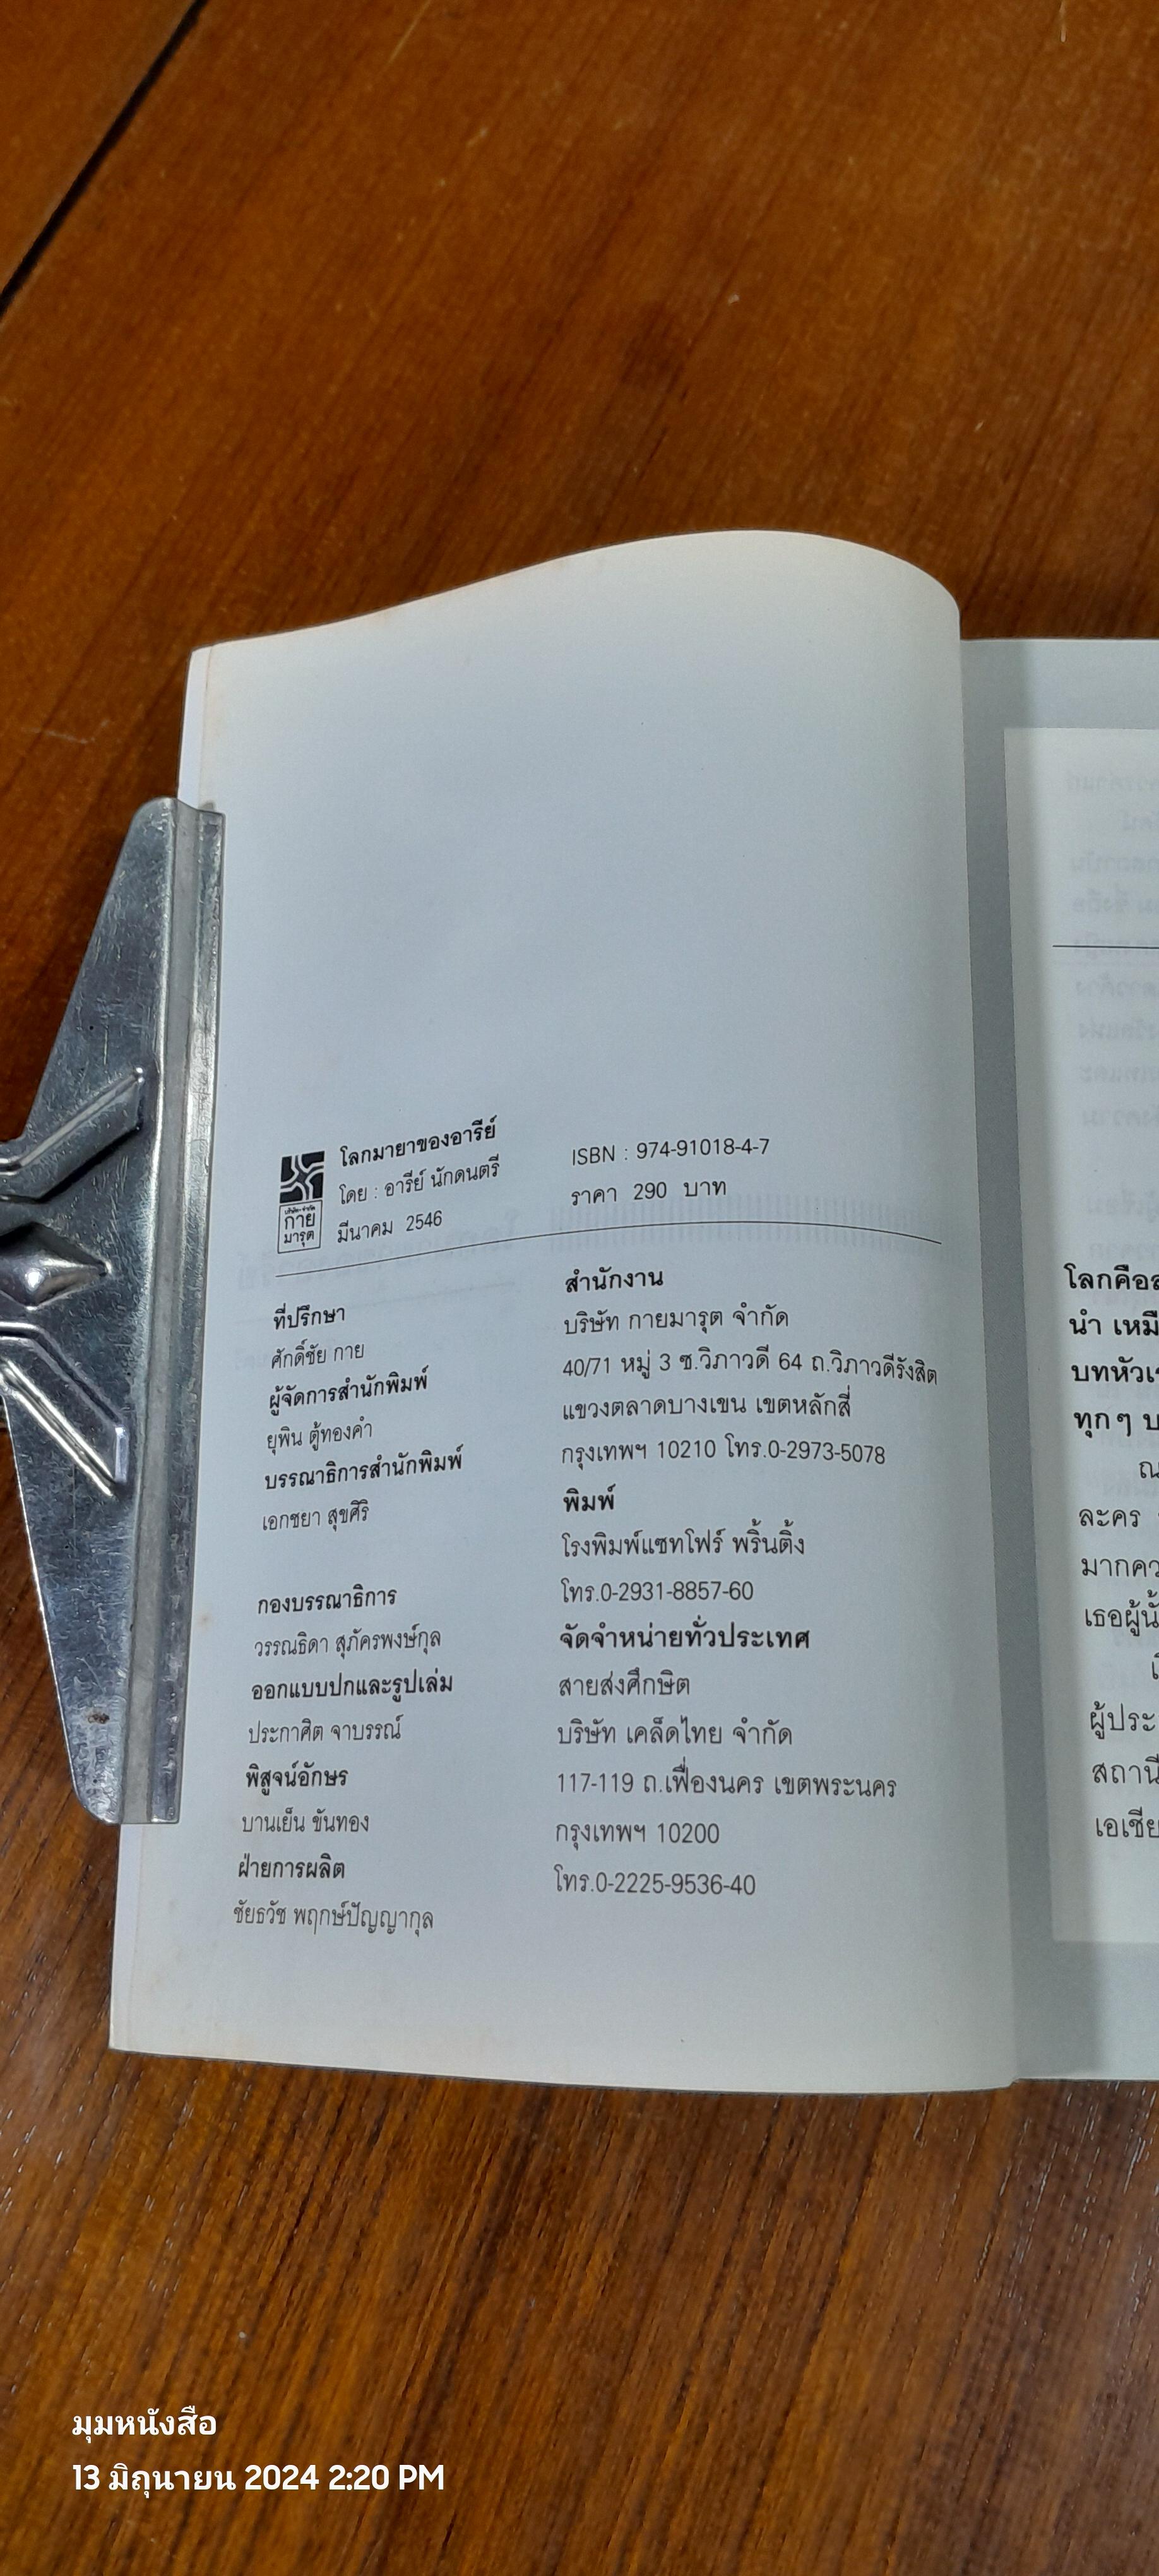 โลกมายาของอารีย์
โดย : อารีย์ นักดนตรี
มีนาคม 2546
บริษัท จำกัด
กาย
มารุต
ISBN : 974-91018-4-7
ราคา 290 บาท
ที่ปรึกษา
ศักดิ์ชัย กาย
ผู้จัดการสำนักพิมพ์
ยุพิน ตู้ทองคำ
บรรณาธิการสำนักพิมพ์
เอกชยา สุขศิริ
กองบรรณาธิการ
วรรณธิดา สุภัครพงษ์กุล
ออกแบบปกและรูปเล่ม
ประกาศิต จาบรรณ์
พิสูจน์อักษร
บานเย็น ขันทอง
ฝ่ายการผลิต
ชัยธวัช พฤกษ์ปัญญากุล
สำนักงาน
บริษัท กายมารุต จำกัด
40/71 หมู่ 3 ซ.วิภาวดี 64 ถ.วิภาวดีรังสิต
แขวงตลาดบางเขน เขตหลักสี่
กรุงเทพฯ 10210 โทร.0-2973-5078
พิมพ์
โรงพิมพ์แซทโฟร์ พริ้นติ้ง
โทร.0-2931-8857-60
จัดจำหน่ายทั่วประเทศ
สายส่งศึกษิต
บริษัท เคล็ดไทย จำกัด
117-119 ถ.เฟื่องนคร เขตพระนคร
กรุงเทพฯ 10200
โทร.0-2225-9536-40
โลกคือ
นำ เหมื
บทหัว
ทุกๆ บ
ณ
ละคร
มากคว
เธอผู้นั้
ผู้ประ
สถานี
เอเชีย
มุมหนังสือ
13 มิถุนายน 2024 2:20 PM